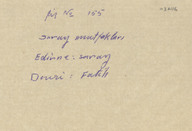 No 155
saray mutfakları
Edirne: saray
: Fatih